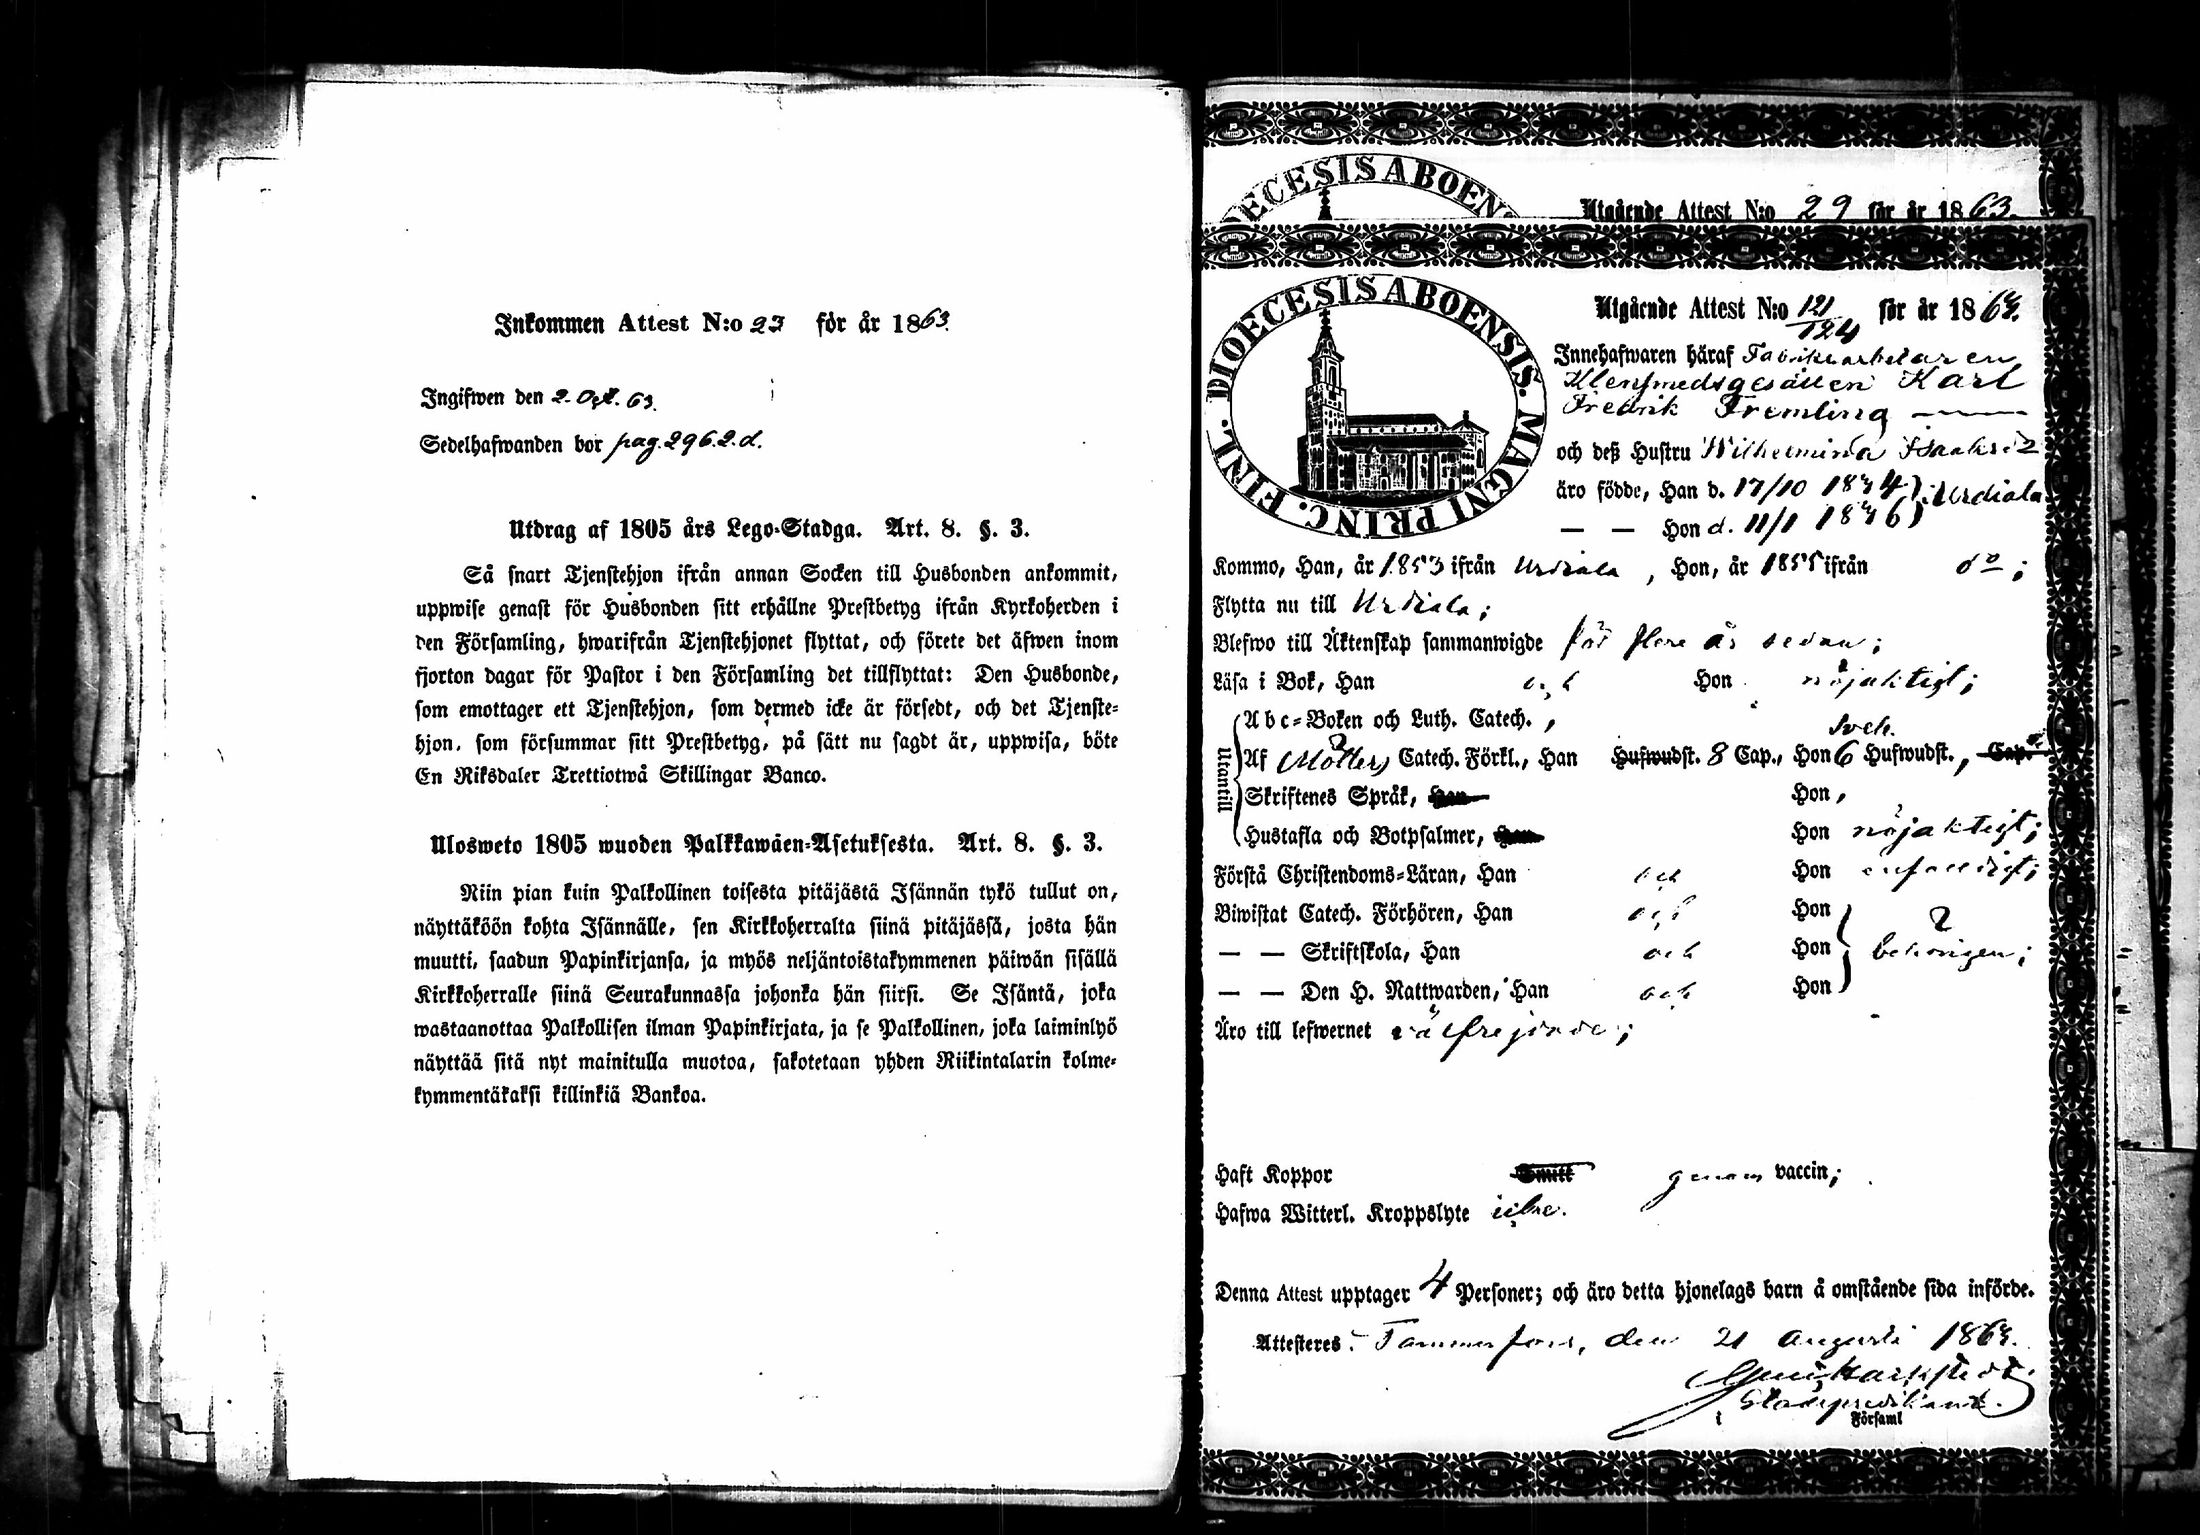 Inkommen Attest N:o 23 för år 1863.
Ingifwen den 2. Oct. 63.
Sedelhafwanden bor pag. 296.2.d.
Utdrag af 1805 års Lego-Stadga. Art. 8. §. 3.
Så snart Tjenstehjon ifrån annan Socken till Husbonden ankommit,
uppwise genast för Husbonden sitt erhållne Prestbetyg ifrån Kyrkoherden i
den Församling, hwarifrån Tjenstehjonet flyttat, och förete det äfwen inom
fjorton dagar för Pastor i den Församling det tillflyttat: Den Husbonde,
som emottager ett Tjenstehjon, som dermed icke är försedt, och det Tjenste-
hjon, som försummar sitt Prestbetyg, på sätt nu sagdt är, uppwisa, böte
En Riksdaler Trettiotwå Skillingar Banco.
Ulosweto 1805 wuoden Palkkawäen-Asetuksesta. Art. 8. §. 3.
Niin pian kuin Palkollinen toisesta pitäjästä Isännän tykö tullut on,
näyttäköön kohta Isännälle, sen Kirkkoherralta siinä pitäjässä, josta hän
muutti, saadun Papinkirjansa, ja myös neljäntoistakymmenen päiwän sisällä
Kirkkoherralle siinä Seurakunnassa johonka hän siirsi. Se Isäntä, joka
wastaanottaa Palkollisen ilman Papinkirjata, ja se Palkollinen, joka laiminlyö
näyttää sitä nyt mainitulla muotoa, sakotetaan yhden Riikintalarin kolme-
kymmentäkaksi killinkiä Bankoa.
DIOECESIS ABOENS
Utgående Attest N:o 29 för år 1863.
DIOECESIS ABOENSIS. MAGNI PRINC. FINL.
Utgående Attest N:o 121/124 för år 1863.
Innehafwaren häraf Fabriksarbetaren
Klensmedsgesällen Karl
Fredrik Fremling
och deß Hustru Wilhelmina Isaaks
äro födde, Han d. 17/10 1834 Urdiala
— — Hon d. 11/1 1836
Kommo, Han, år 1853 ifrån Urdiala, Hon, år 1855 ifrån do;
Flytta nu till Urdiala;
Blefwo till Äktenskap sammanwigde för flere år sedan;
Läsa i Bok, Han och Hon nöjaktigt;
Utantill
Abc-Boken och Luth. Catech.,
Svek.
Af Möllers Catech. Förkl., Han Hufwudst. 8 Cap., Hon 6 Hufwudst., Cap.
Skriftenes Språk, Han Hon,
Hustafla och Botpsalmer, Han Hon nöjaktigt;
Förstå Christendoms-Läran, Han och Hon enfaldigt;
Biwistat Catech. Förhören, Han och Hon
— — Skriftskola, Han och Hon behörigen;
— — Den H. Nattwarden, Han och Hon
Äro till lefwernet välfrejdade;
Haft Koppor Smitt genom vaccin;
Hafwa Witterl. Kroppslyte icke.
Denna Attest upptager 4 Personer; och äro detta hjonelags barn å omstående sida införde.
Attesteres: Tammerfors, den 21 Augusti 1863.
Stadspredikant.
i Församl